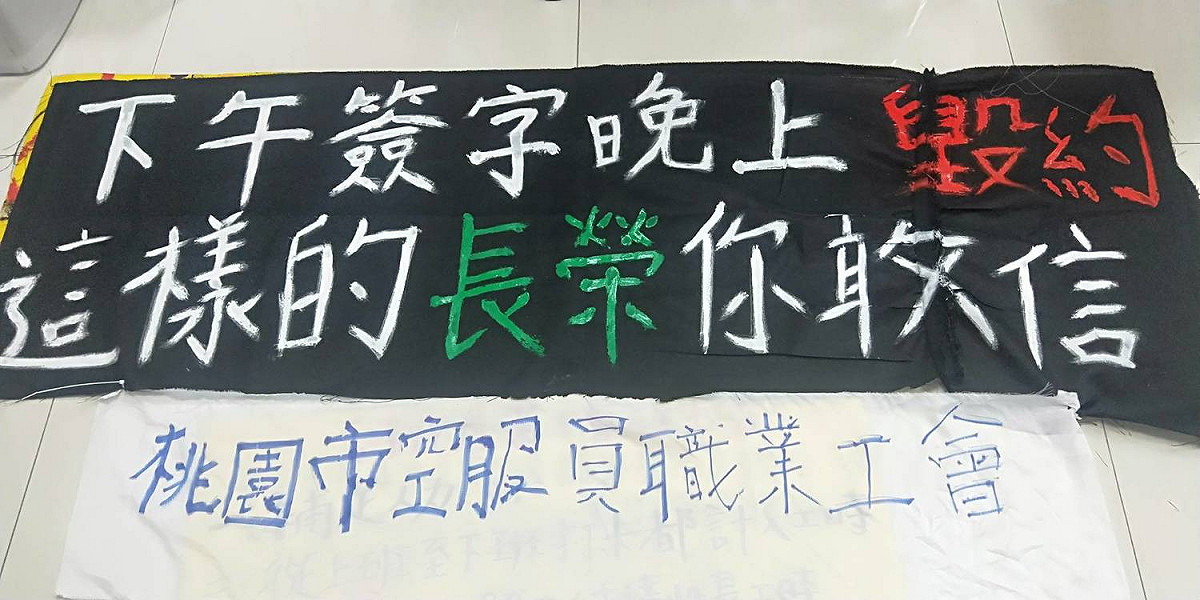 下午簽字晚上毀約
這樣的長榮你敢信
桃園市空服員職業工會